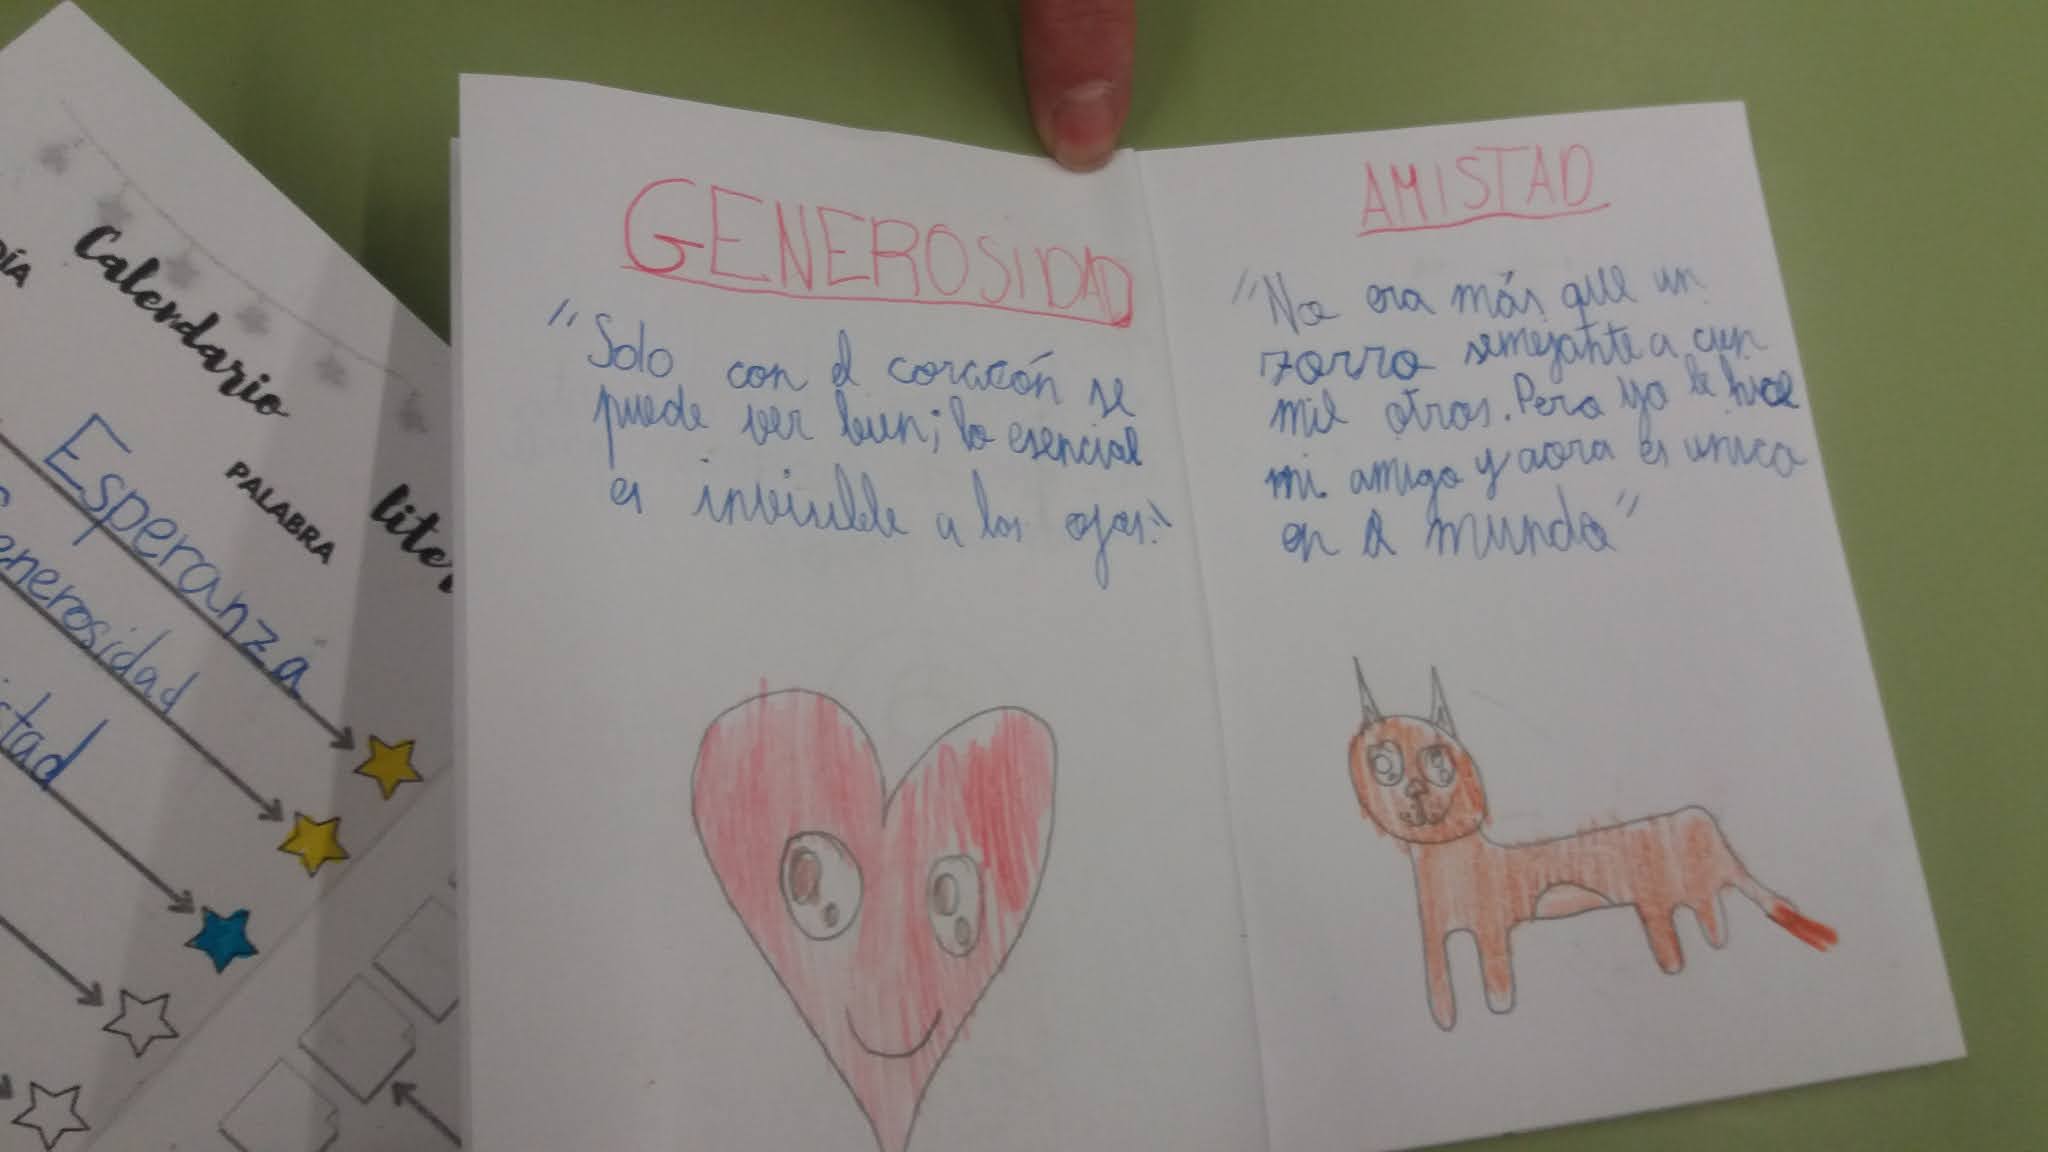 Calendario
liter
DÍA
PALABRA
Esperanza
enerosidad
stad
GENEROSIDAD
"Solo con el corazón se
puede ver bien; lo esencial
es invisible a los ojos."
AMISTAD
"No era más que un
zorro semejante a cien
mil otros. Pero yo le hice
mi amigo y aora es unico
en el mundo"